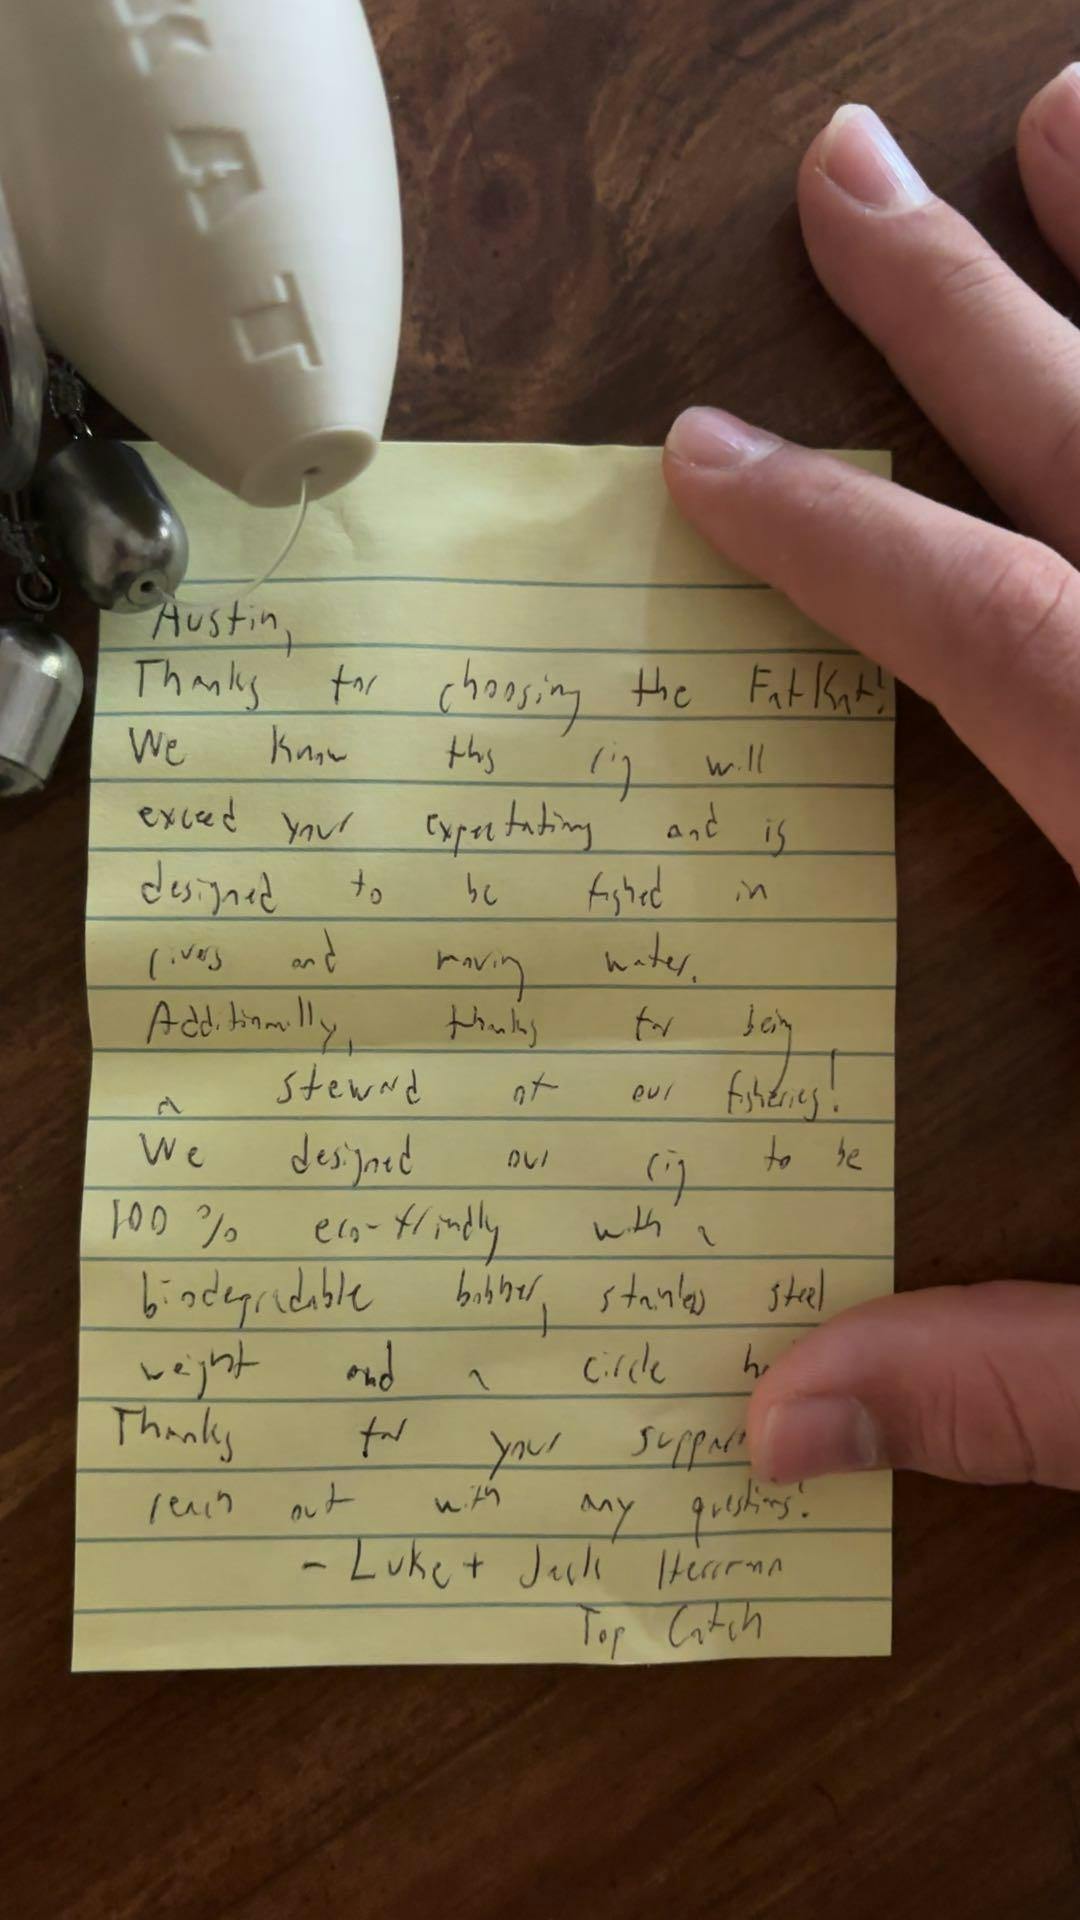 KAT
Austin,
Thanks for choosing the FatKat!
We know this rig will
exceed your expectations and is
designed to be fished in
rivers and moving water.
Additionally, thanks for being
a steward of our fisheries!
We designed our rig to be
100% eco-frindly with a
biodegradable bobber, stainless steel
weight and a circle
Thanks for your
reach out with any questions!
- Luke + Jack Herrman
Top Catch